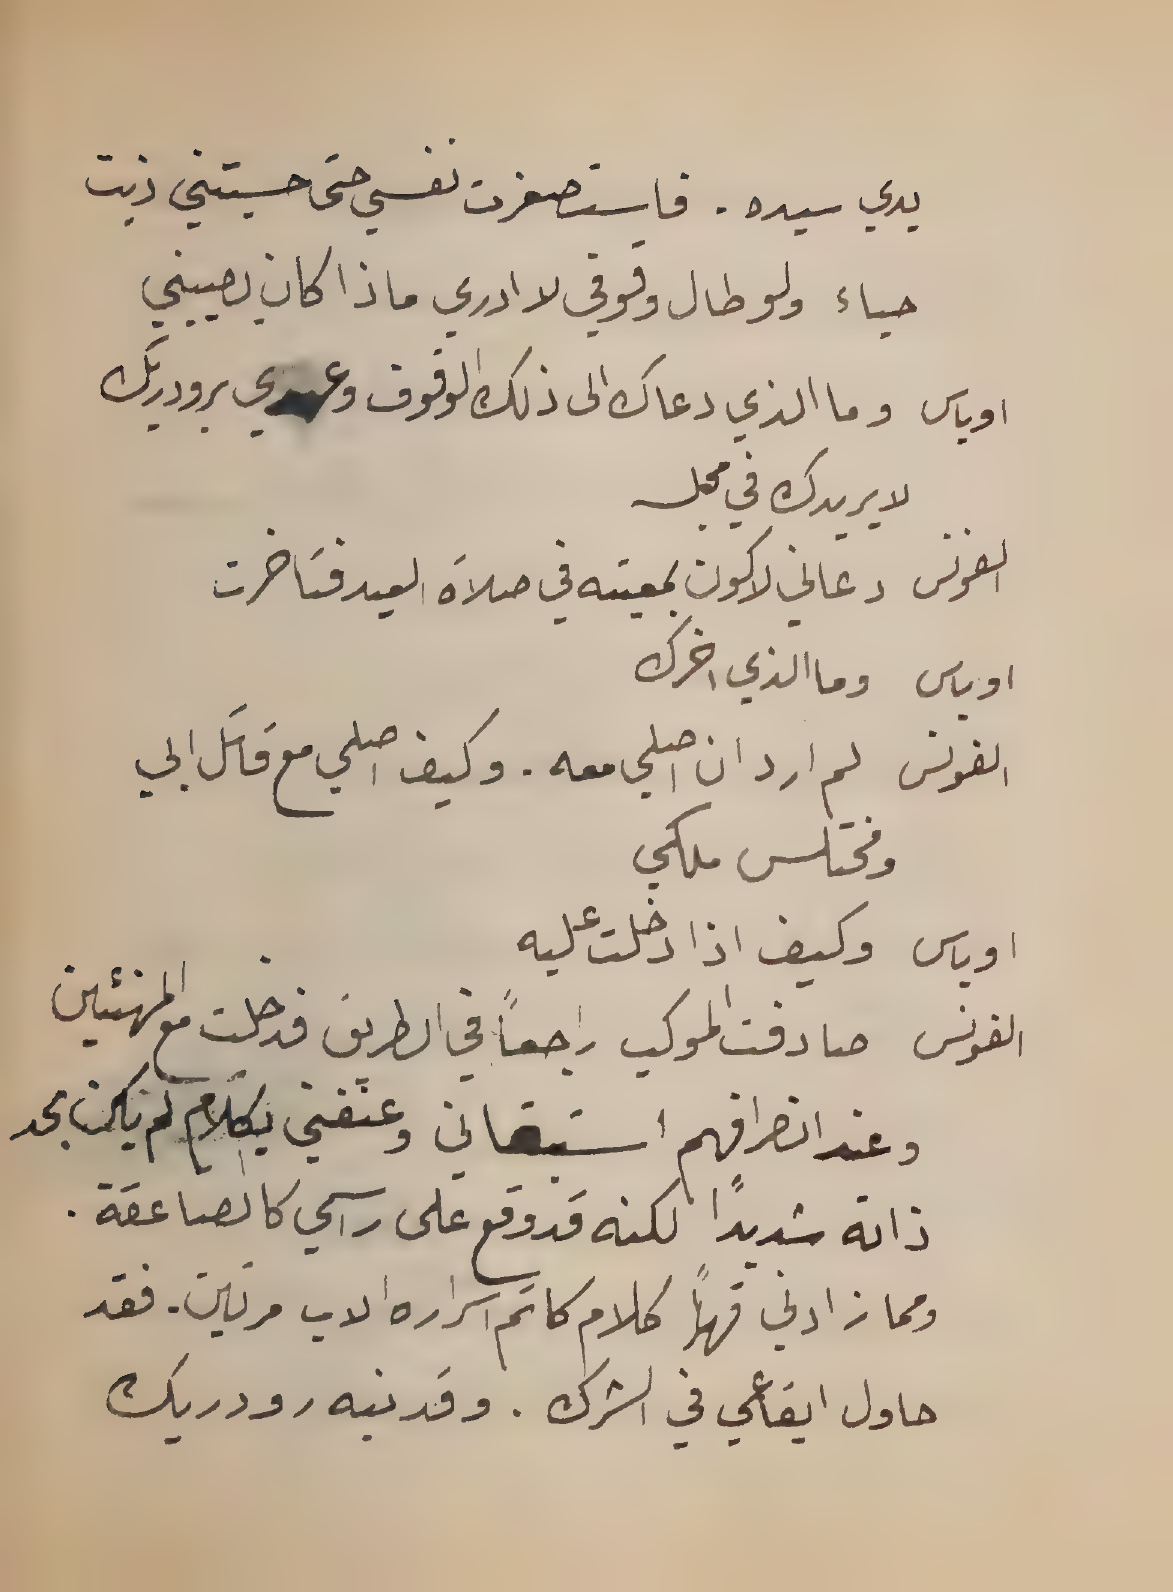 يدي سيده . فاستصغرت نفسي حتى حسبتني ذبت
حياء ولو طال وقوفي لا ادري ماذا كان يصيبني
اوباس وما الذي دعاك الى ذلك الوقوف وعهدي برودريك
لا يريدك في مجلسه
الفونس دعاني لاكون بمعيته في صلاة العيد فتاخرت
اوباس وما الذي اخرك
الفونس لم ارد ان اصلي معه . وكيف اصلي مع قاتل ابي
ومختلس ملكي
اوباس وكيف اذا دخلت عليه
الفونس صادفت الموكب راجعاً في الطريق فدخلت مع المهنئين
وعند انصرافهم استبقاني وعنّفني بكلام لم يكن بحد
ذاته شديداً لكنه قد وقع على راسي كالصاعقة .
ومما زادني قهراً كلام كاتم اسراره الاب مرتين . فقد
حاول ايقاعي في الشرك . وقد نبه رودريك